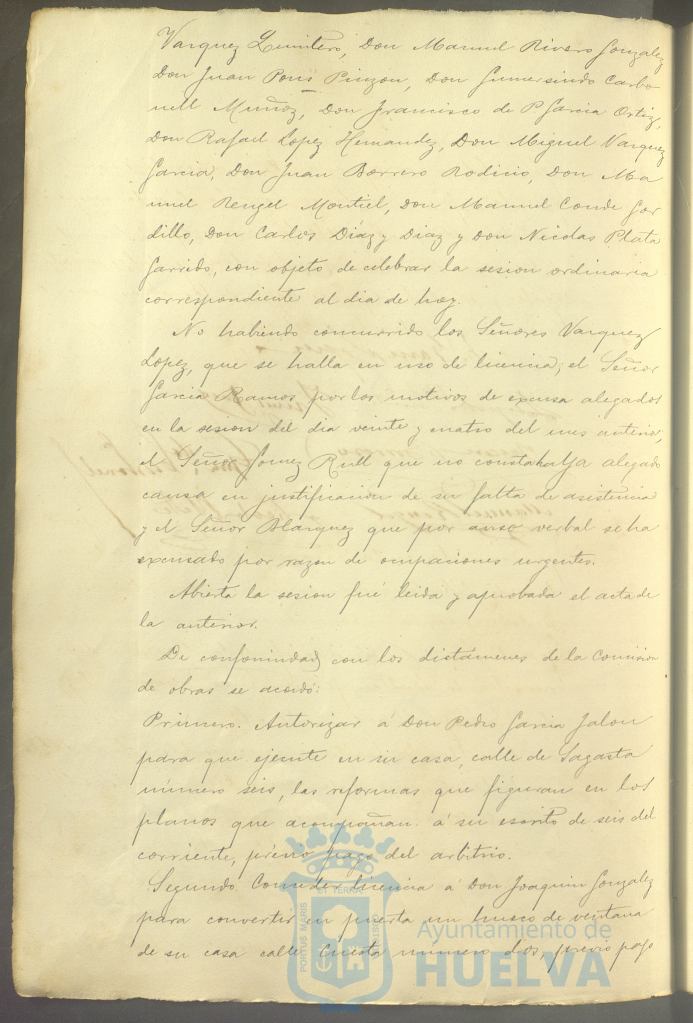 Vazquez Quintero, Don Manuel Rivero Gonzalez
Don Juan Pons Pinzon, Don Gumersindo Carbo-
nell Muñoz, Don Francisco de P Garcia Ortiz,
Don Rafael Lopez Hernandez, Don Miguel Vazquez
Garcia, Don Juan Borrero Rodicio, Don Ma
nuel Rengel Montiel, Don Manuel Conde Gor
dillo, Don Carlos Diáz y Diaz y Don Nicolas Plata
Garrido, con objeto de celebrar la sesion ordinaria
correspondiente al dia de hoy.
No habiendo concurrido los Señores Vazquez
Lopez, que se halla en uso de licencia; el Señor
Garcia Ramos por los motivos de excusa alegados
en la sesion del dia veinte y cuatro del mes anterior,
el Señor Gomez Rull que no consta haya alegado
causa en justificacion de su falta de asistencia
y el Señor Blazquez que por aviso verbal se ha
excusado por razon de ocupaciones urgentes.
Abierta la sesion fué leida y aprobada el acta de
la anterior.
De conformidad con los dictámenes de la Comision
de obras se acordó:
Primero. Autorizar á Don Pedro Garcia Jalon
para que ejecute en su casa, calle de Sagasta
número seis, las reformas que figuran en los
planos que acompañan á su escrito de seis del
corriente, prévio pago del arbitrio.
Segundo. Conceder licencia á Don Joaquin Gonzalez
para convertir en puerta un hueco de ventana
de su casa calle Cuesta número dos, previo pago
PORTUS MARIS
ET TERRAE
CUSTODIA
Ayuntamiento de
HUELVA